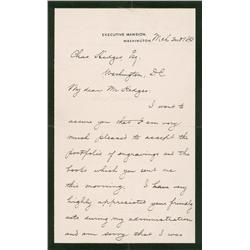 EXECUTIVE MANSION,
WASHINGTON.
Chas Hedges, Esq.
Washington, D.C.
My dear Mr Hedges:
I want to
assure you that I am very
much pleased to accept the
portfolio of engravings and the
books which you sent me
this morning. I have very
highly appreciated your friendly
acts during my administration
and am sorry that I was